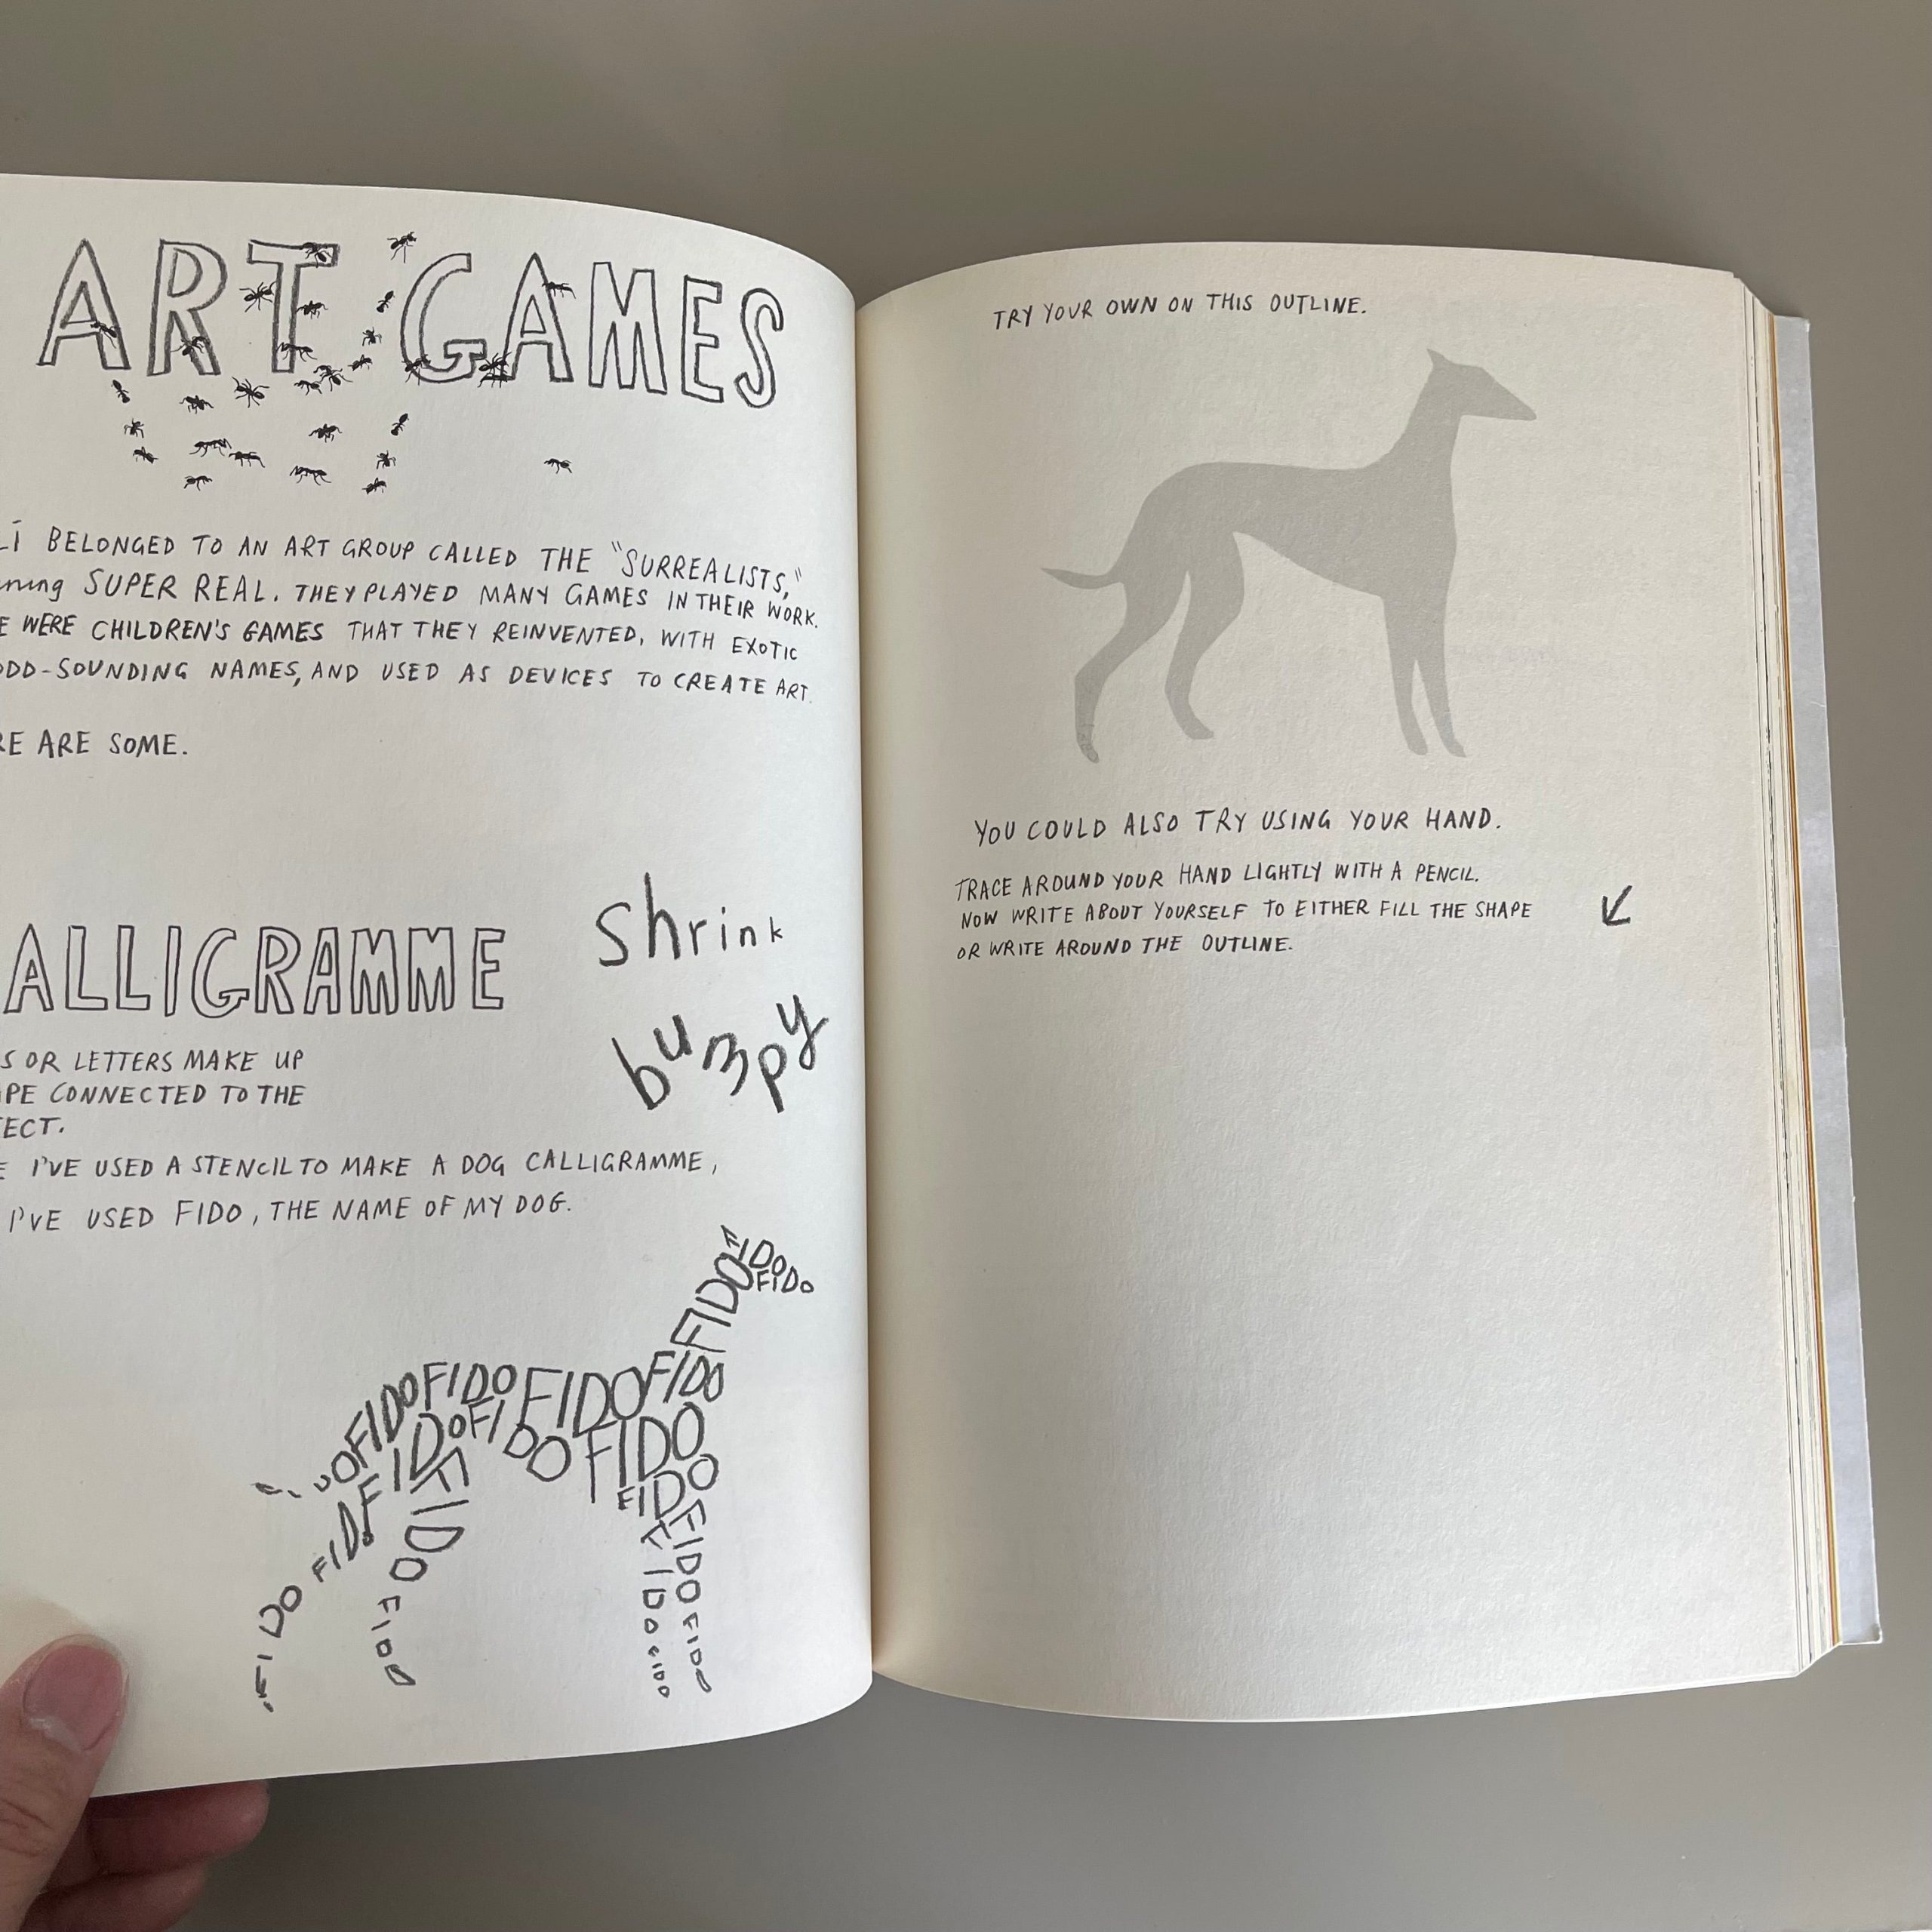 ART GAMES
BELONGED TO AN ART GROUP CALLED THE "SURREALISTS,"
SUPER REAL. THEY PLAYED MANY GAMES IN THEIR WORK.
WERE CHILDREN'S GAMES THAT THEY REINVENTED, WITH EXOTIC
ODD-SOUNDING NAMES, AND USED AS DEVICES TO CREATE ART.
ARE SOME.
ALLIGRAMME
shrink
bumpy
S OR LETTERS MAKE UP
CONNECTED TO THE
I'VE USED A STENCIL TO MAKE A DOG CALLIGRAMME,
I'VE USED FIDO, THE NAME OF MY DOG.
FIDO
FIDO
FIDO
FIDO FIDO FIDO FIDO
FIDO FIDO FIDO
FIDO FIDO
FIDO FIDO
FIDO FIDO
FIDO FIDO
FIDO FIDO
TRY YOUR OWN ON THIS OUTLINE.
YOU COULD ALSO TRY USING YOUR HAND.
TRACE AROUND YOUR HAND LIGHTLY WITH A PENCIL.
NOW WRITE ABOUT YOURSELF TO EITHER FILL THE SHAPE
OR WRITE AROUND THE OUTLINE.